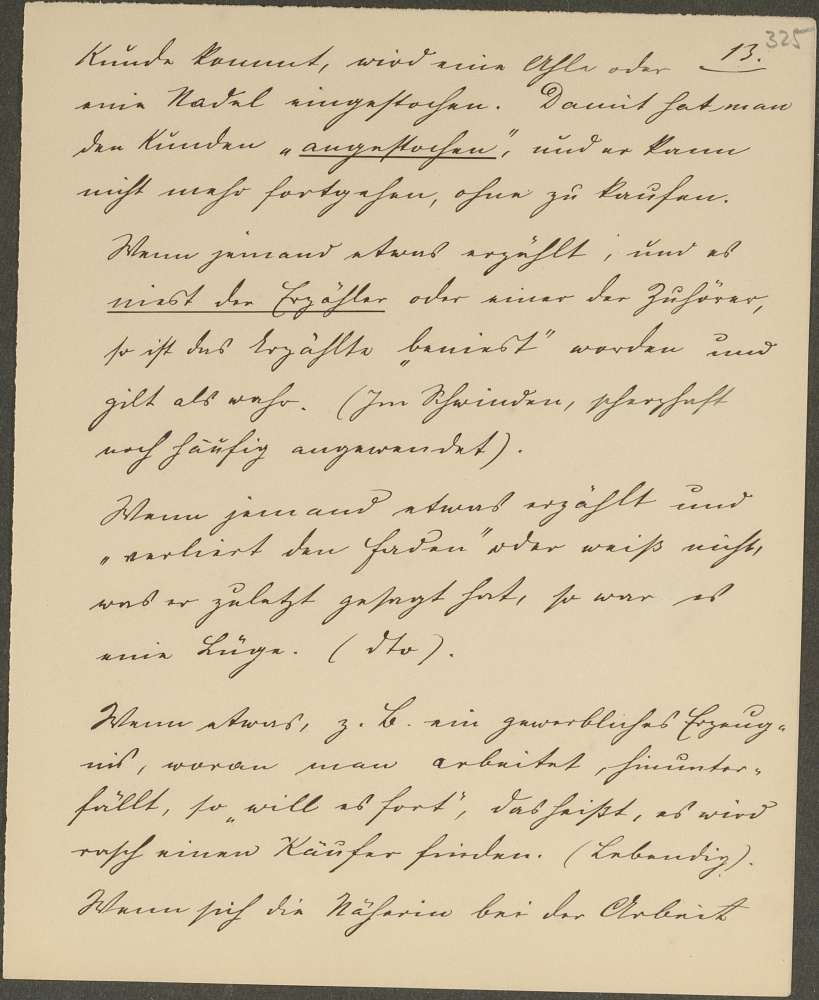 325
13.
Kunde kommt, wird eine Ahle oder
eine Nadel eingestochen. Damit hat man
den Kunden „angestochen", und er kann
nicht mehr fortgehen, ohne zu kaufen.
Wenn jemand etwas erzählt, und es
niest der Erzähler oder einer der Zuhörer,
so ist das Erzählte „beniest" worden und
gilt als wahr. (Im Schwinden, scherzhaft
noch häufig angewendet).
Wenn jemand etwas erzählt und
„verliert den Faden" oder weiß nicht,
was er zuletzt gesagt hat, so war es
eine Lüge. (dto).
Wenn etwas, z. B. ein gewerbliches Erzeug-
nis, woran man arbeitet, hinunter-
fällt, so „will es fort", das heißt, es wird
rasch einen Käufer finden. (Lebendig).
Wenn sich die Näherin bei der Arbeit